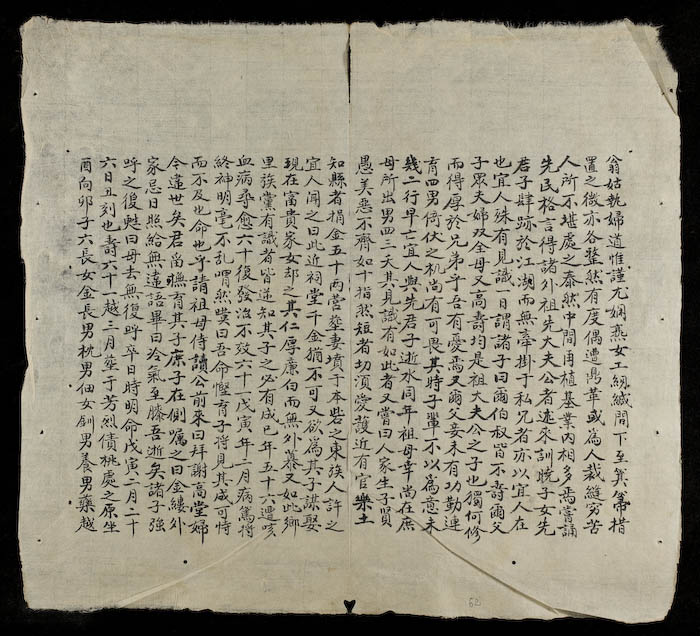 翁姑執婦道惟謹尤嫻烝女工紉緘間下至箕箒措
置之微亦各然有度偶遭華或為人裁縫窮苦
人所不堪處之泰然中間再植基業內相多焉嘗誦
先民格言得諸外祖先大夫公者述來訓晓子女先
君子肆跡於江湖而無牽掛于私兄者亦以宜人在
也宜人殊有見識一日謂諸子曰爾伯叔皆不壽爾父
子眾夫婦双全母又高壽均是祖大夫公之子也獨何修
而得厚於兄弟子吾有憂焉又爾父妾未有功勤連
育四男倚伏之机尚有可畏其時子輩一不以為意未
幾二行早亡宜人與先君子逝水同年祖母幸尚在庶
母所出男四三夭其見識有如此者又嘗曰人家生子賢
愚美惡不齊如十指然短者切須愛護近有官樂土
知縣者捐金五十两营塟妻墳于本砦之東族人許之
宜人聞之曰此近祠堂千金猶不可又欲為其子謀娶
現在富貴家女却之其仁厚廉白而無外慕又如此鄉
里族黨有識者皆逆知其子之必有成巳年五十六遭咳
血病尋愈六十復發治不效六十一戊寅年二月病篤将
終神明毫不乱喟然嘆曰吾命慳育子将見其成可恃
而不及也命也乎請祖母侍讀公前來曰拜謝高堂婦
今違世矣君尚育其子庶子在側嘱之曰金縷外
家忌日照給無違語畢曰冷氣至膝吾逝矣諸子強
呼之復甦曰母去無復呼卒日時明命戊寅二月二十
六日丑刻也壽六十一越三月塟于芳烈債桃處之原坐
酉向卯子六長女金長男枕男佃女釧男養男藥越
62